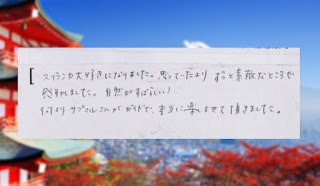 スリランカ大好きになりました。思っていたより ずっと素敵なところで
感動しました。自然がすばらしい!
何より サマンさんが ガイドで、本当に楽しませて頂きました。